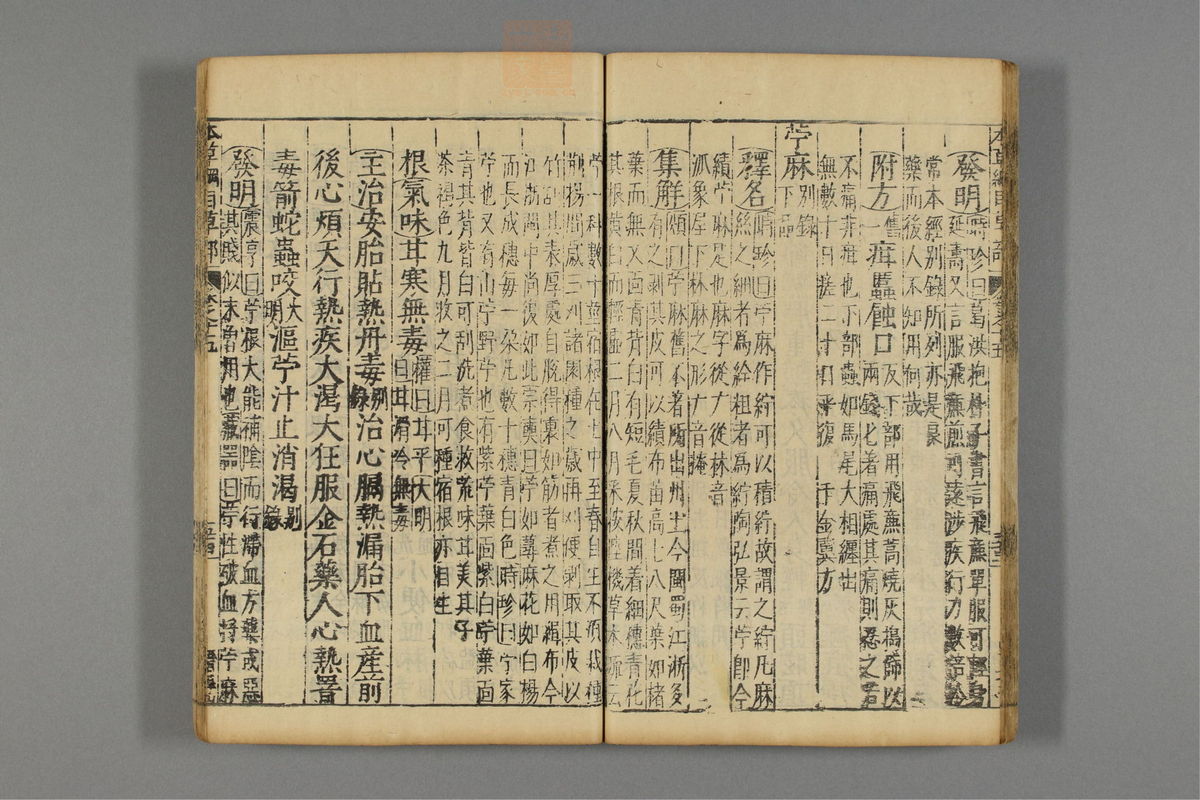 發明 時珍曰葛洪抱朴子書言飛廉單服可輕身
延壽又言服飛廉煎可遠涉疾行力數倍於
常本經別錄所列亦是良
藥而後人不知用何哉
附方 一 疳䘌蝕口及下部用飛廉蒿燒灰搗篩以
兩錢匕著痛處其痛則忍之若
不痛非疳也下部蟲如馬尾大相纏出
無數十日瘥二十日平復 千金翼方
苧麻 別錄
下品
釋名 時珍曰苧麻作紵可以積紵故謂之紵凡麻
絲之細者為絟粗者為紵陶弘景云苧即今
績苧麻是也麻字從广從𣏟音
派象屋下𣏟麻之形广音掩
集解 頌曰苧麻舊不著所出州土今閩蜀江浙多
有之剥其皮可以績布苗高七八尺葉如楮
葉而無叉面青背白有短毛夏秋間着細穗青花
其根黄白而輕虛二月八月采
苧一科數十莖宿根在土中至春自生不須栽種
荊揚間歲三刈諸園種之歲再刈便剥取其皮以
竹刮其表厚處自脫得裏如筋者煮之用緝布今
江浙閩中尚復如此宗奭曰苧如蕁麻花如白楊
而長成穗每一朵凡數十穗青白色時珍曰苧家
苧也又有山苧野苧也有紫苧葉面紫白苧葉面
青其背皆白可刮洗煮食救荒味甘美其子
茶褐色九月收之二月可種宿根亦自生
根氣味甘寒無毒 權曰甘平大明
曰甘滑冷無毒
主治安胎貼熱丹毒 別錄 治心膈熱漏胎下血産前
後心煩天行熱疾大渴大狂服金石藥人心熱署
毒箭蛇蟲咬 大明 漚苧汁止消渴 別錄
發明 震亨曰苧根大能補陰而行滯血方藥或惡
其賤似未曾用也藏器曰苧性破血將苧麻